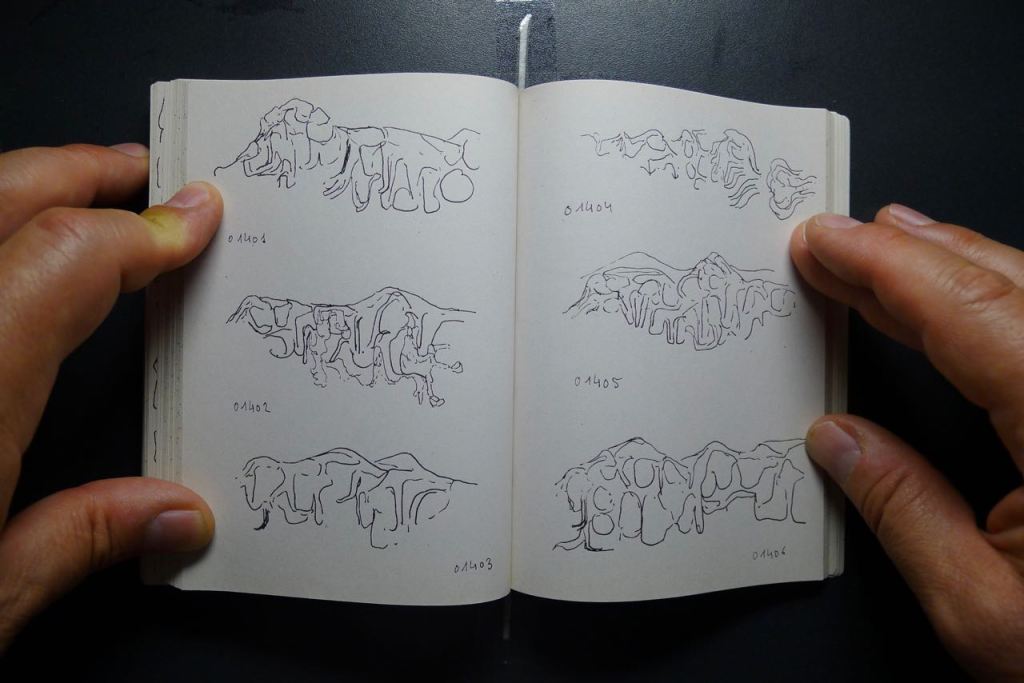 01401
01402
01403
01404
01405
01406